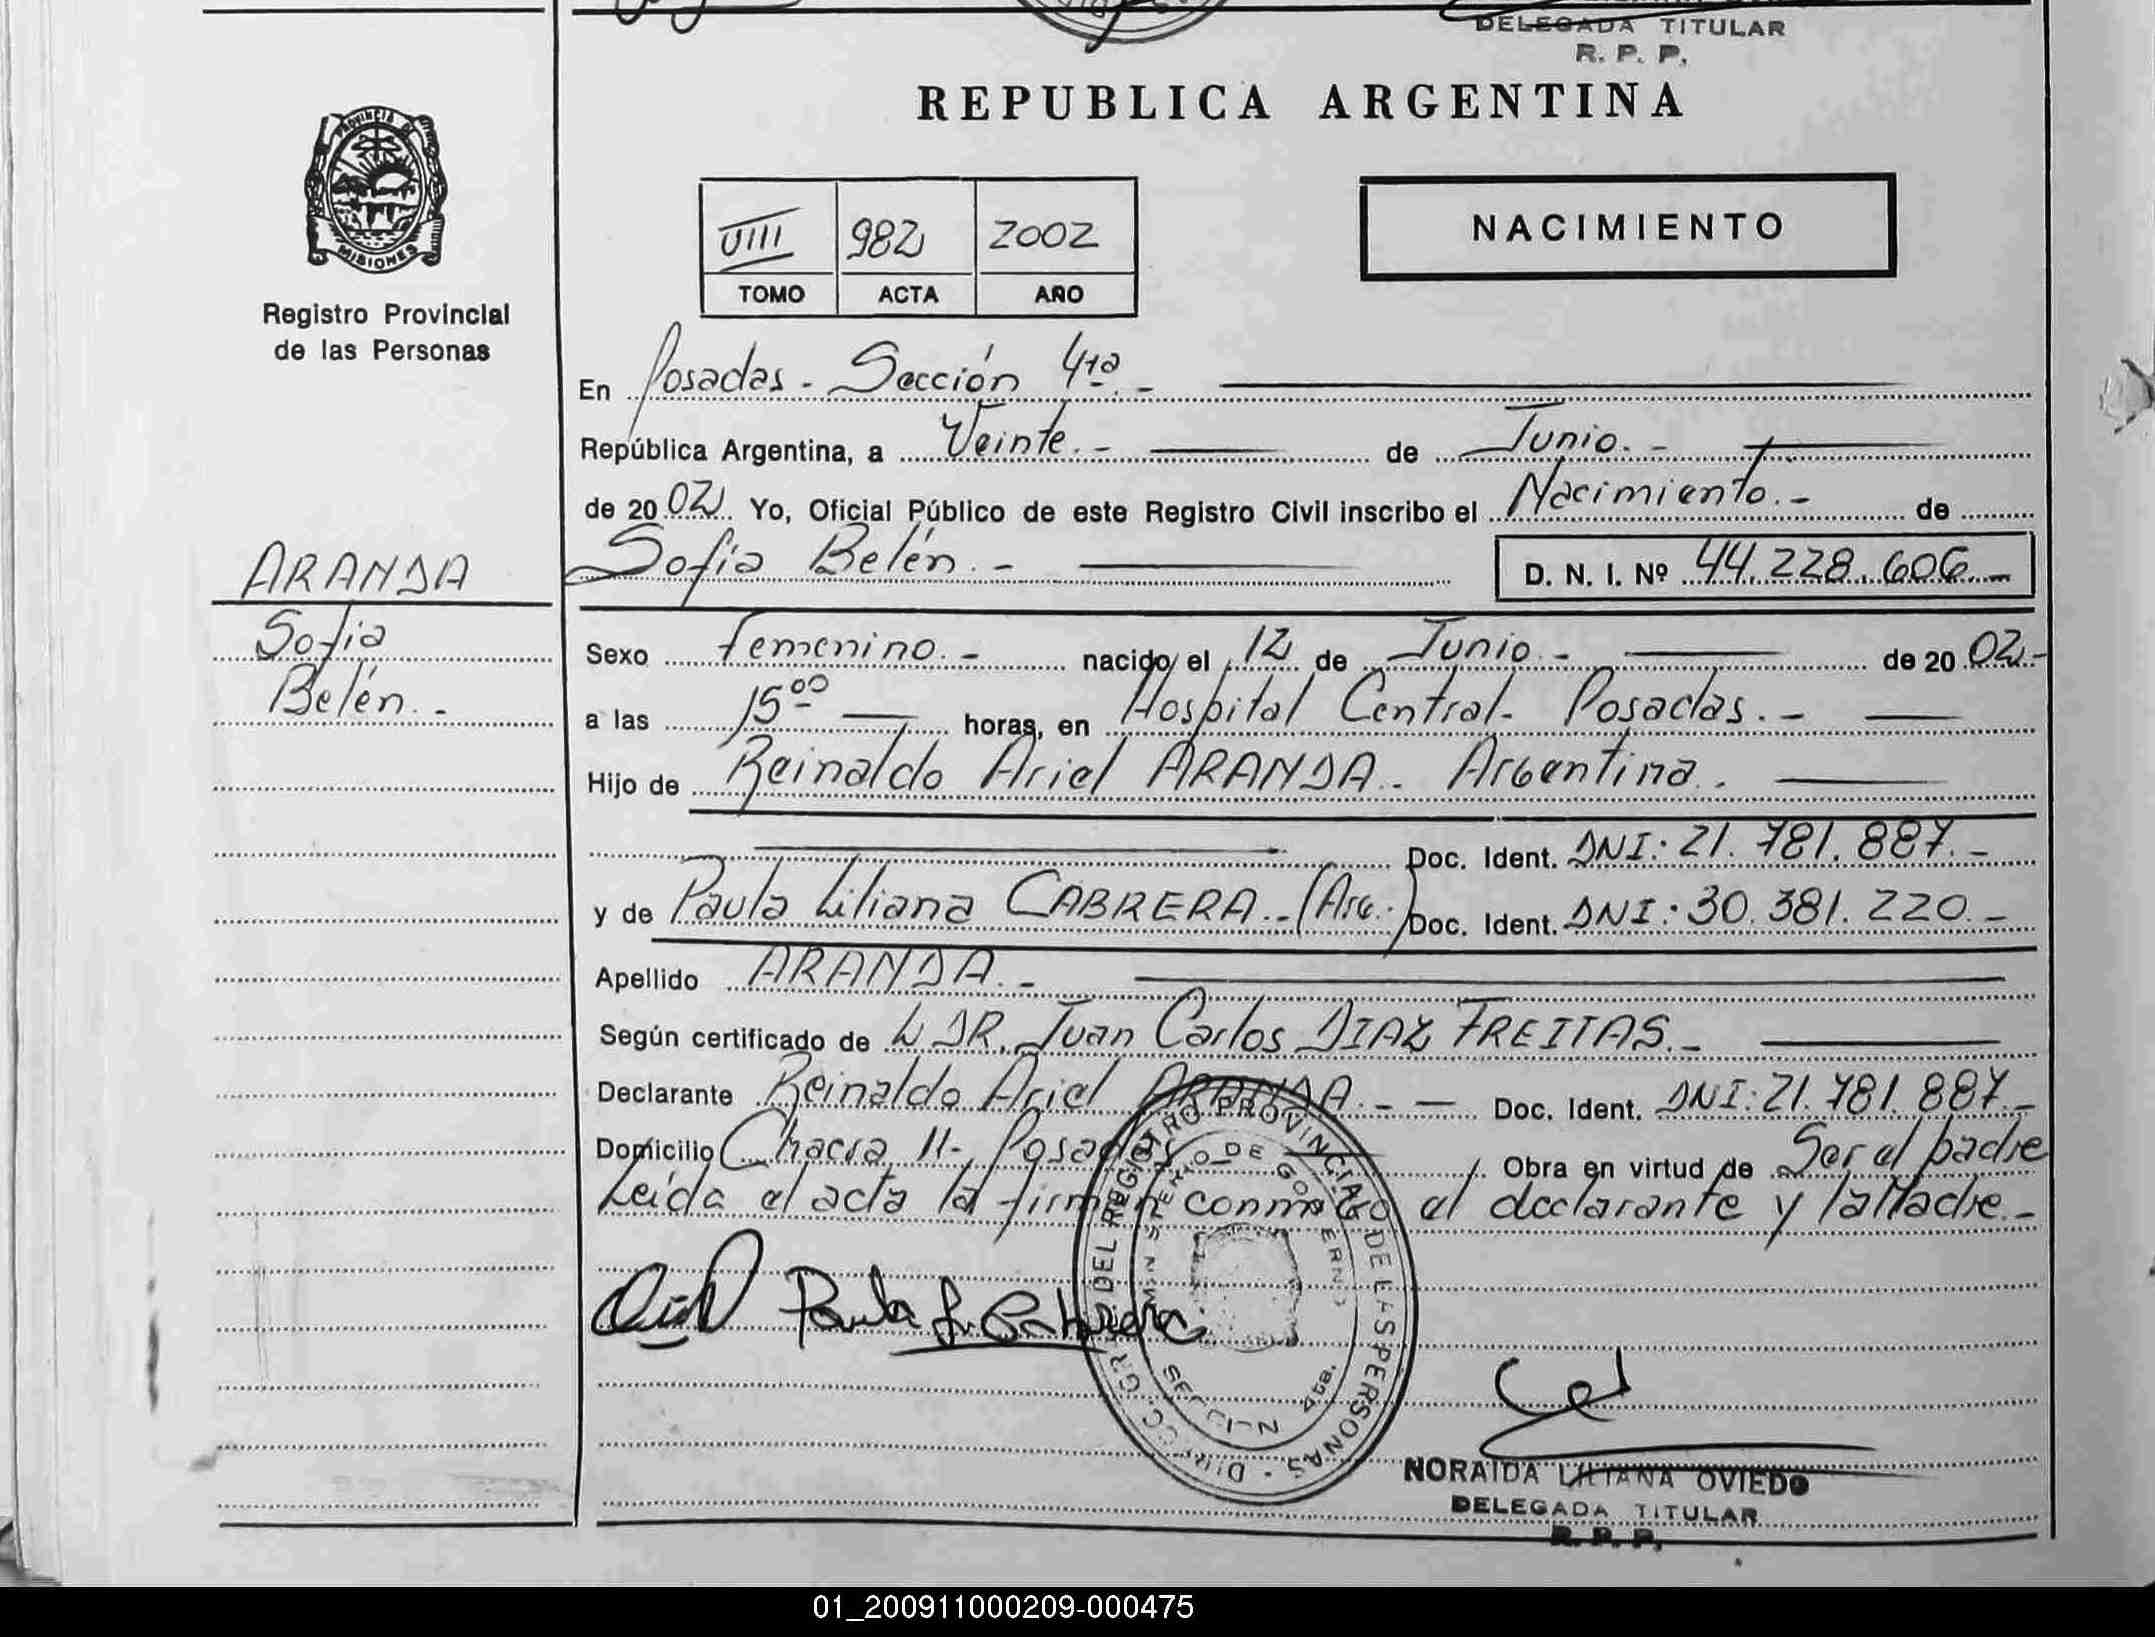 DELEGADA TITULAR
R. P. P.
PROVINCIA DE
MISIONES
Registro Provincial
de las Personas
REPUBLICA ARGENTINA
VIII 982 2002
TOMO ACTA AÑO
NACIMIENTO
En Posadas - Sección 4ta -
República Argentina, a Veinte. - de Junio. -
de 20 02 Yo, Oficial Público de este Registro Civil inscribo el Nacimiento. - de
Sofía Belén. - D. N. I. Nº 44.228.606 -
ARANDA
Sofia
Belén. -
Sexo Femenino. - nacido el 12 de Junio. - de 20 02.-
a las 15 00 horas, en Hospital Central - Posadas. -
Hijo de Reinaldo Ariel ARANDA - Argentina.
Doc. Ident. DNI: 21.781.887. -
y de Paula Liliana CABRERA.. (Arg.) Doc. Ident. DNI: 30.381.220. -
Apellido ARANDA. -
Según certificado de DR. Juan Carlos DIAZ FREITAS. -
Declarante Reinaldo Ariel ARANDA. - - Doc. Ident. DNI: 21.781.887 -
Domicilio Chacra 11-, Posadas Obra en virtud de Ser el padre
Leída el acta la firman conmigo el declarante y la Madre. -
Paula L. Cabrera
REGISTRO PROVINCIAL DE LAS PERSONAS
4ta.
NORAIDA LILIANA OVIEDO
DELEGADA TITULAR
R. P. P.
01_200911000209-000475